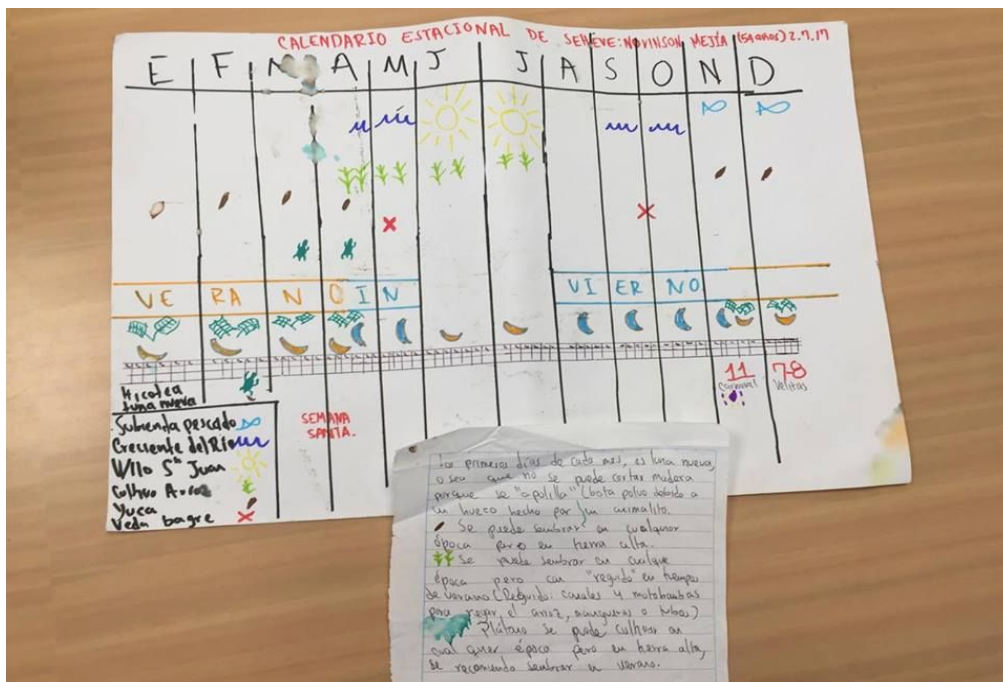 CALENDARIO ESTACIONAL DE SEHEVE: NOVINSON MEJÍA (54 años) 2.7.17
E F M A M J J A S O N D
VERANO IN VIERNO
11 7-8
Carnaval Velitas
SEMANA
SANTA.
Hicotea
Luna nueva
Subienda pescado
Creciente del Río
V/llo Sn Juan
Cultivo Arroz
Yuca
Veda bagre
Los primeros días de cada mes, es luna nueva,
o sea que no se puede cortar madera
porque se "apolilla" (bota polvo debido a
un hueco hecho por un animalito.
Se puede sembrar en cualquier
época pero en tierra alta.
Se puede sembrar en cualque
época pero con "reguido" en tiempo
de verano (Reguido: canales y motobombas
para regar el arroz, mangueras o tubos)
Plátano se puede cultivar en
cual quier época pero en tierra alta,
se recomienda sembrar en verano.